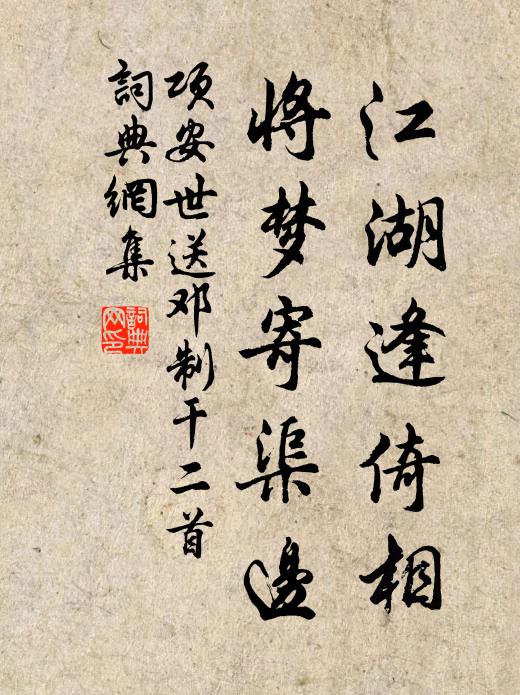 江湖逢倚相
将梦寄渠邊
项安世送邓制干二首
詞典網集
詞典網印